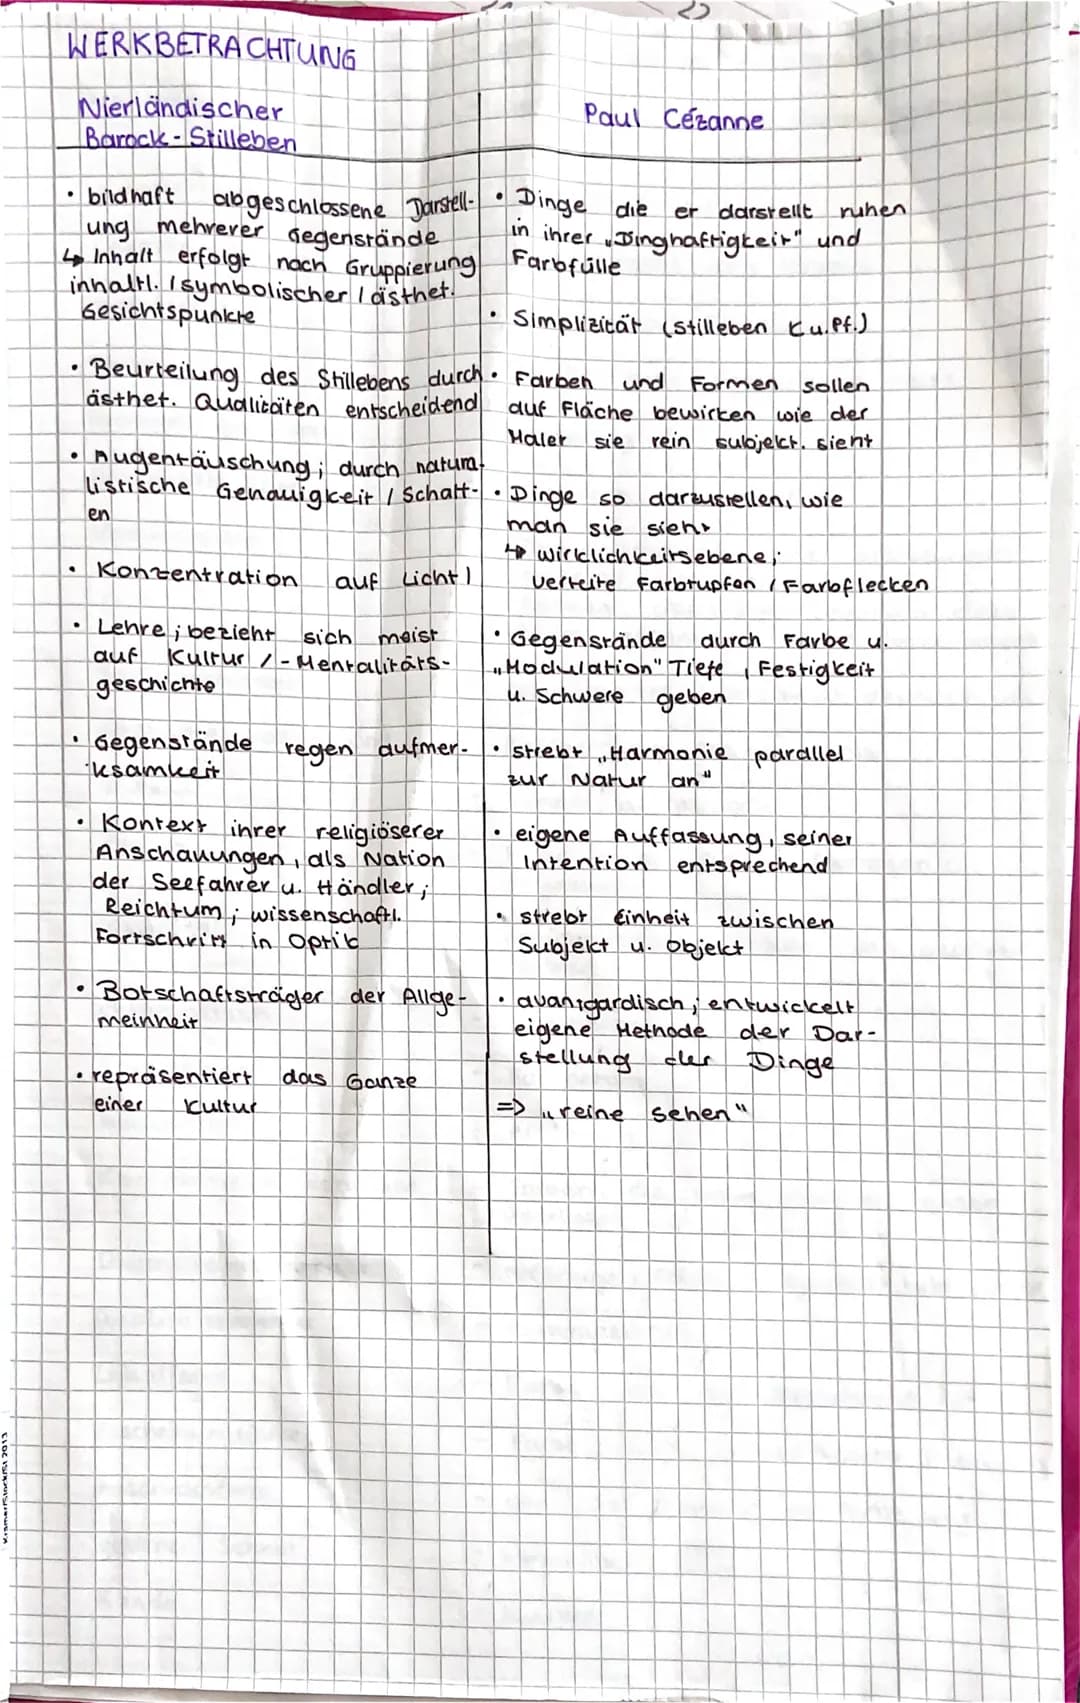 WERKBETRACHTUNG
Nierländischer
Barock-Stilleben
• bildhaft abgeschlossene Darstell-
ung mehrerer Gegenstände
↳ Inhalt erfolgt nach Gruppierung
inhaltl. / symbolischer / ästhet.
Gesichtspunkte
• Beurteilung des Stillebens durch
ästhet. Qualitäten entscheidend
• Augentäuschung; durch natura-
listische Genauigkeit / Schatt-
en
• Konzentration auf Licht!
• Lehre; bezieht sich meist
auf Kultur / -Mentalitäts-
geschichte
• Gegenstände regen aufmer-
ksamkeit
• Kontext ihrer religiöserer
Anschauungen, als Nation
der Seefahrer u. Händler;
Reichtum; wissenschaftl.
Fortschritt in Optik
• Botschaftsträger der Allge-
meinheit
• repräsentiert das Ganze
einer Kultur
Paul Cézanne
• Dinge die er darstellt ruhen
in ihrer „Dinghaftigkeit" und
Farbfülle
• Simplizität (stilleben K.u.Pf.)
• Farben und Formen sollen
auf Fläche bewirken wie der
Maler sie rein subjekt. sieht
• Dinge so darzustellen, wie
man sie sieht
↳ wirklichkeitsebene;
verteite Farbtupfen / Farbflecken
• Gegenstände durch Farbe u.
„Modulation" Tiefe, Festigkeit
u. Schwere geben
• strebt „Harmonie parallel
zur Natur an"
• eigene Auffassung, seiner
Intention entsprechend
• strebt Einheit zwischen
Subjekt u. Objekt
• avantgardisch; entwickelt
eigene Methode der Dar-
stellung der Dinge
=> „reine sehen"